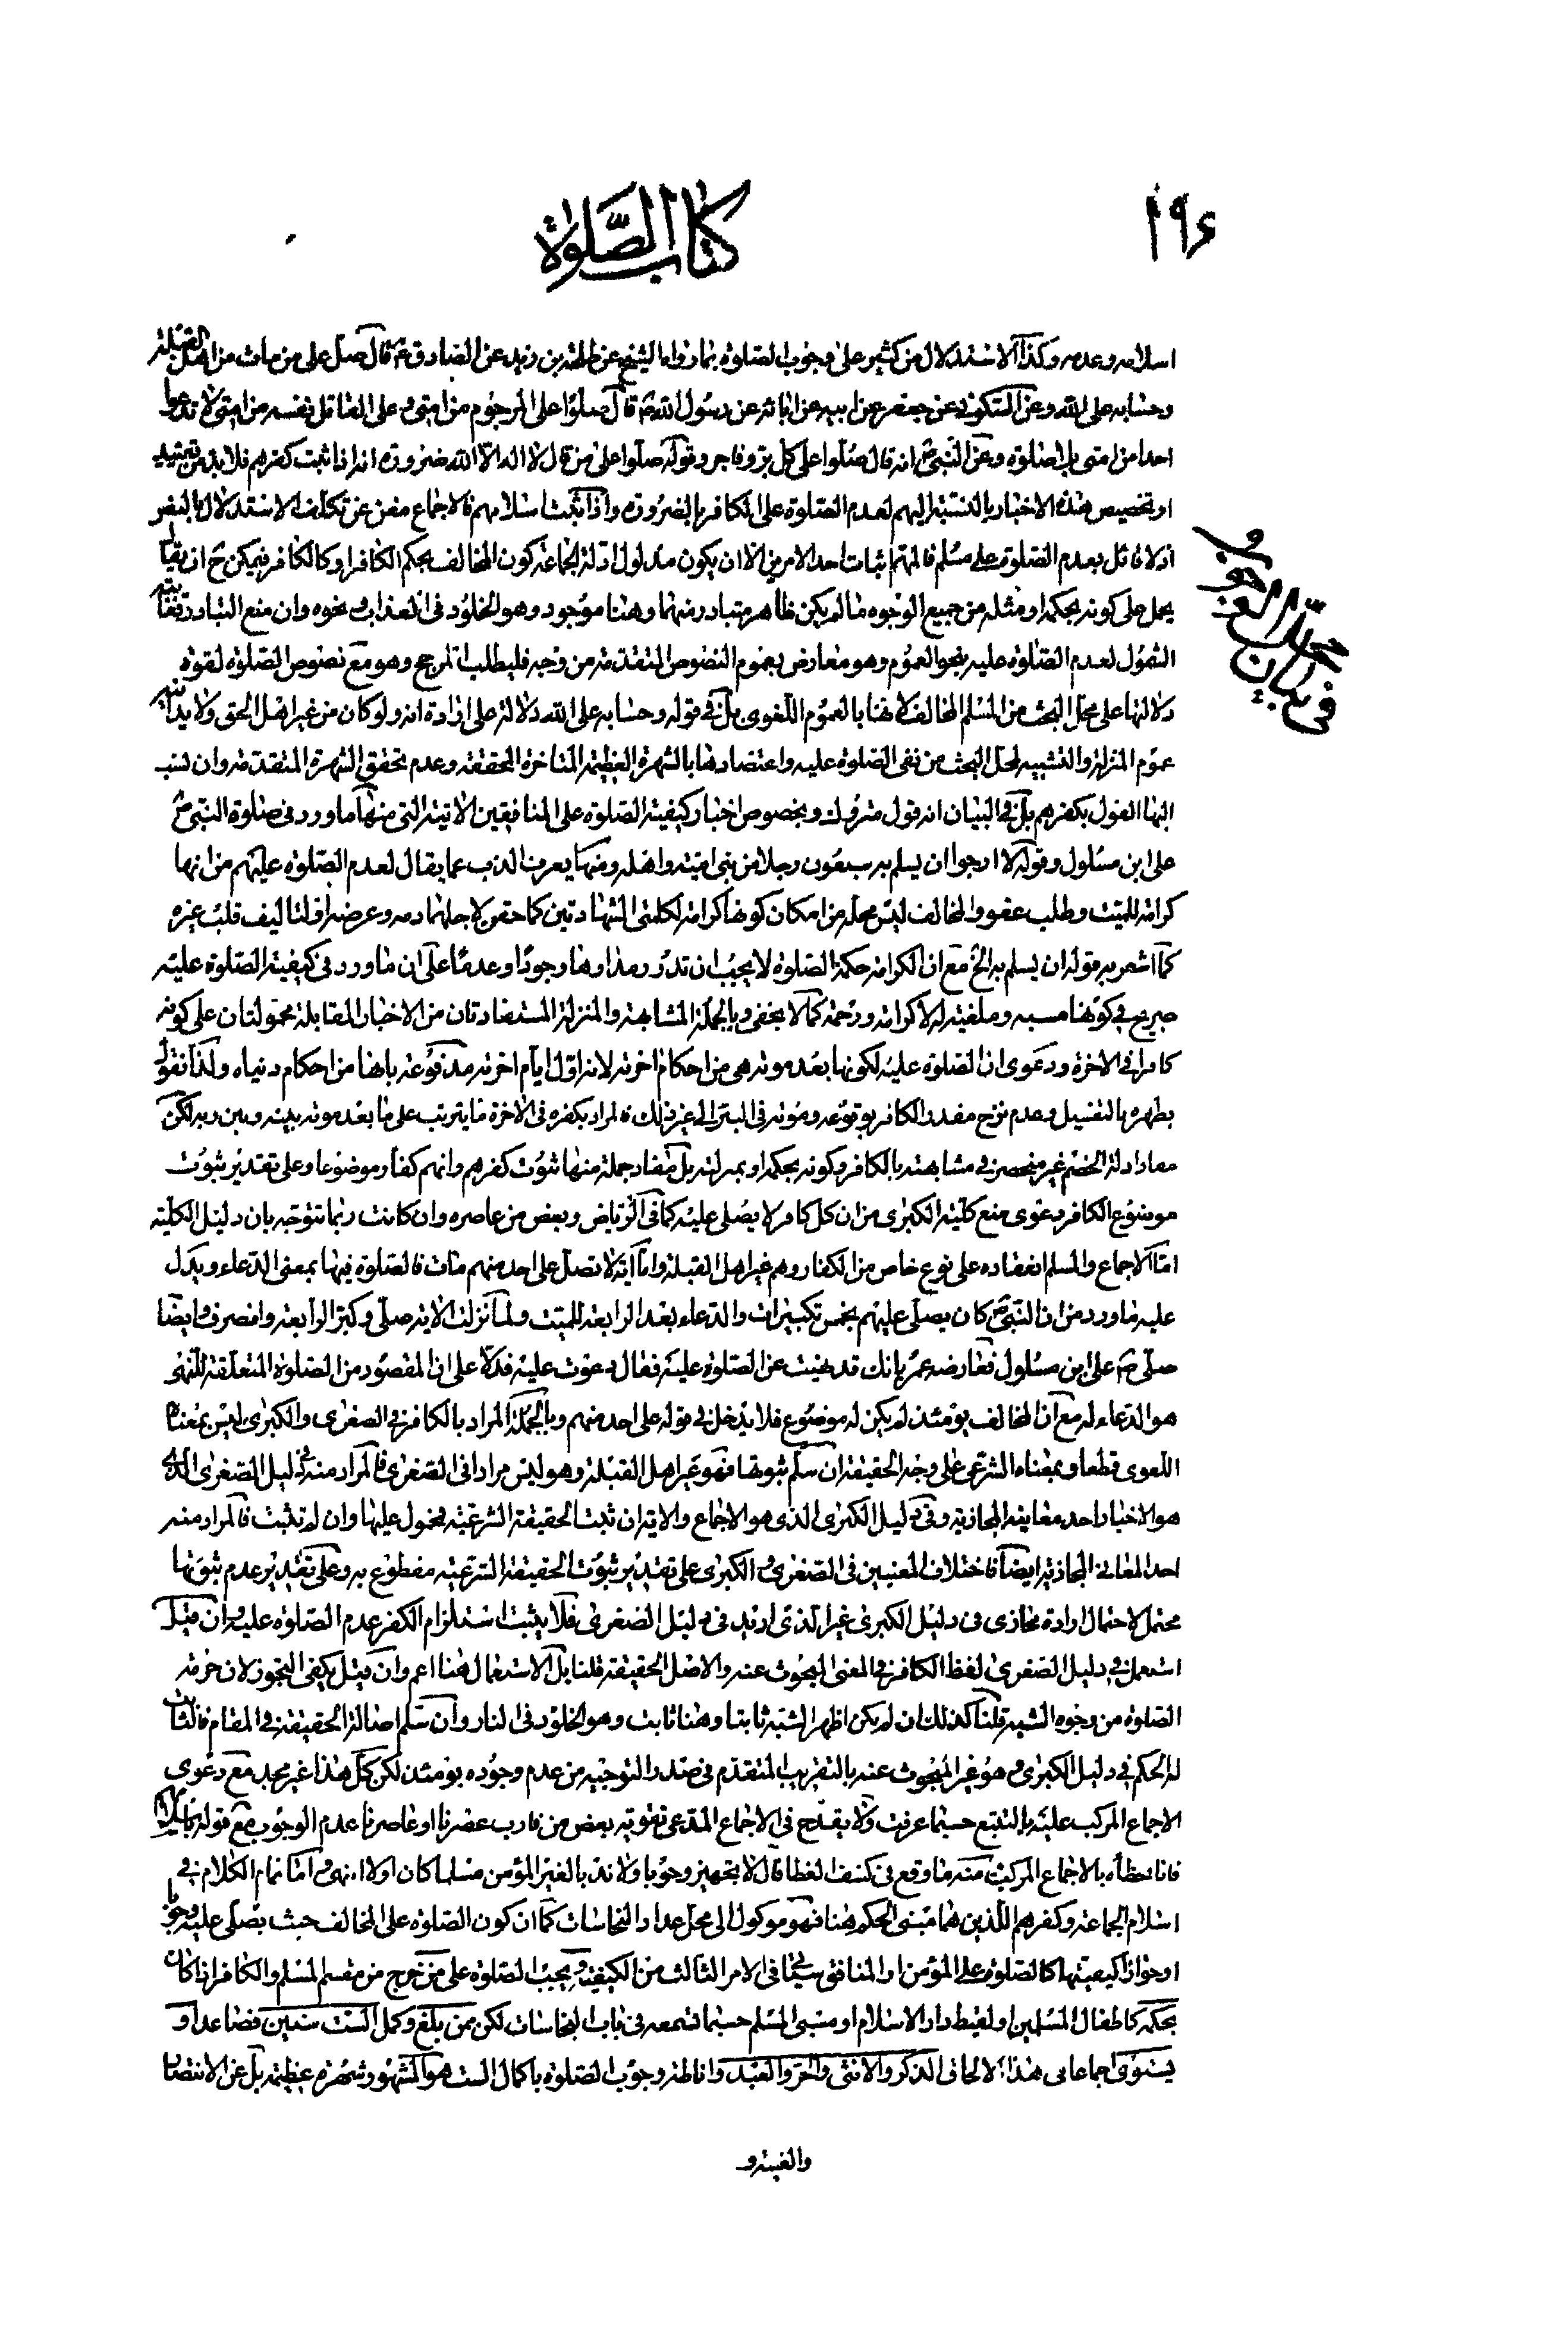 ١٩۶
كتاب الصّلوة
اسلامه وعدمه وكذا الاستدلال من كثير على وجوب الصلوة بما رواه الشيخ عن طلحة بن زيد عن الصادق ع قال صلّ على من مات من اهل القبلة
وحسابه على الله وعن السّكونى عن جعفر عن ابيه عن ابائه عن رسول الله ص قال صلّوا على المرجوم من امتى وعلى القاتل نفسه من امتى لا تدعوا
احدا من امتى بلا صلوة وعن النّبى ص انه قال صلّوا على كل برّ وفاجر وقوله صلّوا على من قال لا اله الّا الله ضرورة انه اذا ثبت كفرهم فلا بد من تقييد
او تخصيص هذه الاخبار بالنسبة اليهم لعدم الصلوة على الكافر بالضرورة واذا ثبت اسلامهم فالاجماع مغن عن تكلف الاستدلال بالنص
اذ لا قائل بعدم الصلوة على مسلم فالمهم اثبات احد الامرين الا ان يكون مدلول ادلة الجماعة كون المخالف بحكم الكافر او كالكافر فيمكن ح ان يقال
يحمل على كونه بحكمه او مثله من جميع الوجوه ما لم يكن ظاهر متبادر منهما وهنا موجود وهو الخلود فى العذاب ونحوه وان منع التبادر فغايته
الشمول لعدم الصّلوة عليه بنحو العموم وهو معارض بعموم النصوص المتقدمة من وجه فليطلب المرجح وهو مع نصوص الصّلوة لقوة
دلالتها على محل البحث من المسلم المخالف لانها بالعموم اللّغوى بل فى قوله وحسابه على الله دلالة على ارادة انه ولو كان من غير اهل الحق ولا يدانيه
عموم المنزلة والتشبيه لمحل البحث من نفى الصلوة عليه واعتضادها بالشهرة العظيمة المتاخرة المحققة وعدم تحقق الشهرة المتقدمة وان نسب
اليها القول بكفرهم بل فى البيان انه قول متروك وبخصوص اخبار كيفية الصّلوة على المنافقين الاتية التى منها ما ورد فى صلوة النّبى ص
على ابن مسلول وقوله لا ارجوا ان يسلم به سبعون رجلا من بنى اميّة واهله ومنها يعرف الذب عما يقال لعدم الصّلوة عليهم من انها
كرامة للميّت وطلب عفو والمخالف ليس محله من امكان كونها كرامة لكلمتى الشهادتين كما حقن لاجلهما دمه وعرضه او لتاليف قلب غيره
كما اشعر به قوله ان يسلم به الخ مع ان الكرامة حكمة الصلوة لا يجب ان تدور مدارها وجودًا وعدمًا على ان ما ورد فى كيفية الصّلوة عليه
صريح فى كونها له لا كرامة ورحمة كما لا يخفى وبالجملة المشابهة والمنزلة المستفادتان من الاخبار المقابلة محمولتان على كونه
كافرا فى الاخرة ودعوى ان الصلوة عليه لكونها بعد موته هى من احكام اخرته لانه اوّل ايام اخرته مدفوعة بانها من احكام دنياه ولذا نقول
بطهره بالتغسيل وعدم نزح مقدر الكافر بوقوعه وموته فى البئر الى غير ذلك فالمراد بكفره فى الاخرة ما يترتب على ما بعد موته بينه وبين ربه لكن
مفاد ادلة الخصم غير منحصر فى مشابهته بالكافر وكونه بحكمه او بمنزلته بل مفاد جملة منها ثبوت كفرهم وانهم كفار موضوعا وعلى تقدير ثبوت
موضوع الكافر دعوى منع كلية الكبرى من ان كل كافر لا يصلى عليه كما فى الرياض وبعض من عاصره وان كانت ربما تتوجه بان دليل الكلية
امّا الاجماع والمسلم انعقاده على نوع خاص من الكفار وهم غير اهل القبلة واما آية لا تصلّ على احد منهم مات فالصلوة فيها بمعنى الدعاء ويدل
عليه ما ورد من ان النّبى ص كان يصلى عليهم بخمس تكبيرات والدعاء بعد الرابعة للميت ولما نزلت الاية صلّى وكبّر الرابعة وانصرف وايضا
صلّى ص على ابن مسلول فعارضه عمر بانك قد نهيت عن الصلوة عليه فقال دعوت عليه فدلّا على ان المقصود من الصلوة المتعلقة للنهى
هو الدعاء له مع ان المخالف يومئذ لم يكن له موضوع فلا يدخل فى قوله على احد منهم وبالجملة المراد بالكافر فى الصغرى والكبرى ليس بمعناه
اللّغوى قطعا وبمعناه الشرعى على وجه الحقيقة ان سلم ثبوتها فهو غير اهل القبلة وهو ليس مرادا فى الصغرى فالمراد منه فى دليل الصغرى الذى
هو الاخبار احد معانيه المجازية وفى دليل الكبرى الذى هو الاجماع والاية ان ثبت الحقيقة الشرعية محمول عليها وان لم تثبت فالمراد منه
احد المعانى المجازية ايضا فاختلاف المعنيين فى الصغرى والكبرى على تقدير ثبوت الحقيقة الشرعية مقطوع به وعلى تقدير عدم ثبوتها
محتمل لاحتمال ارادة مجازى فى دليل الكبرى غير الذى اريد فى دليل الصغرى فلا يثبت استلزام الكفر عدم الصّلوة عليه وان قيل
استعمل فى دليل الصغرى لفظ الكافر فى المعنى المبحوث عنه والاصل الحقيقة قلنا بل الاستعمال هنا اعم وان قيل يكفى التجوز لان حرمة
الصّلوة من وجوه الشبه قلنا كذلك ان لم يكن اظهر الشبه ثابتا وهنا ثابت وهو الخلود فى النار وان سلم اصالة الحقيقة فى المقام فالثابت
له الحكم فى دليل الكبرى وهو غير المبحوث عنه بالتقريب المتقدم فى صدر التوجيه من عدم وجوده يومئذ لكن كل هذا غير مجد مع دعوى
الاجماع المركب عليه بالتتبع حسبما عرفت ولا يقدح فى الاجماع المدعى تقوية بعض من قارب عصرنا او عاصرنا عدم الوجوب مع قوله
فانا نخطأه بالاجماع المركب منه ما وقع فى كشف الغطا قال لا تجهيز وجوبا ولا ندبا لغير المؤمن مسلما كان اولا انتهى واما تمام الكلام فى
اسلام الجماعة وكفرهم اللّذين هما مبنى الحكم هنا فهو موكول الى محل عداد النجاسات كما ان كون الصلوة على المخالف حيث يصلّى عليه وجوبا
او جوازا كيفيتها كالصّلوة على المؤمن او المنافق سيأتى فى الامر الثالث من الكيفية ويجب الصلوة على من خرج من مقسم المسلم والكافر اذا كان
بحكمه كاطفال المسلمين ولقيط دار الاسلام او مسبى المسلم حسبما تسمعه فى باب النجاسات لكن ممن بلغ وكمل الست سنين فصاعدا و
يستوى اجماعا فى هذا الالحاق الذكر والانثى والحر والعبد واناطة وجوب الصلوة باكمال الست هو المشهور شهرة عظيمة بل عن الانتصار
والغنية و
فى بيان